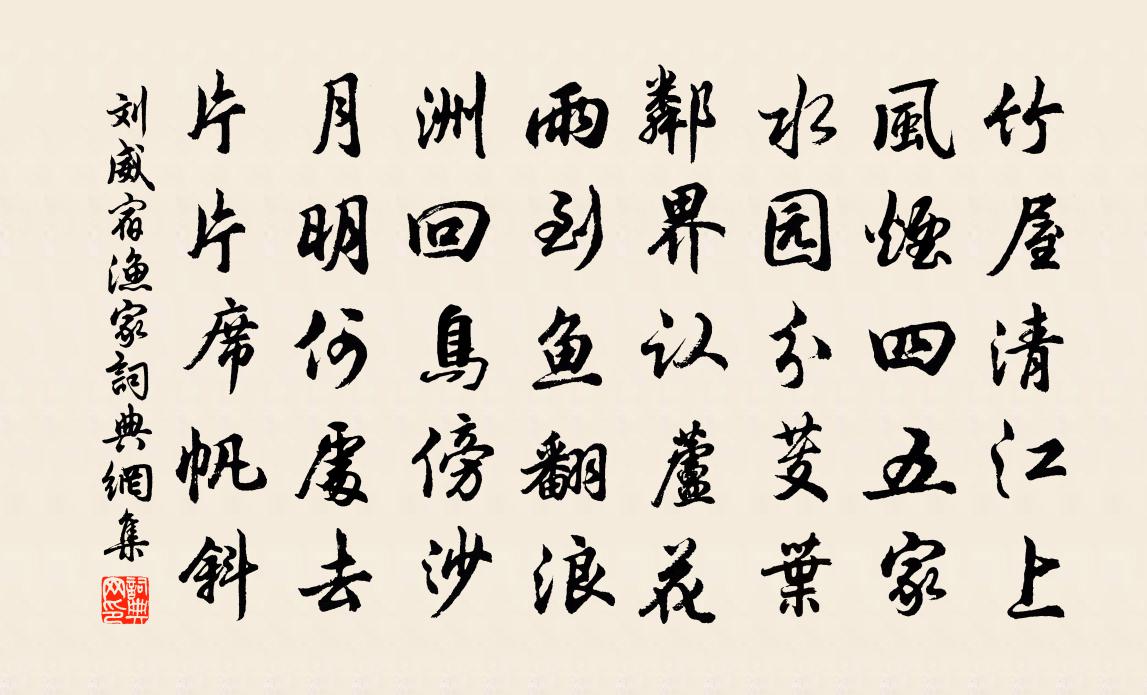 竹屋清江上
風煙四五家
水园分芰葉
鄰界认蘆花
雨到鱼翻浪
洲回鳥傍沙
月明何處去
片片席帆斜
刘威宿漁家詞典網集
詞典网印